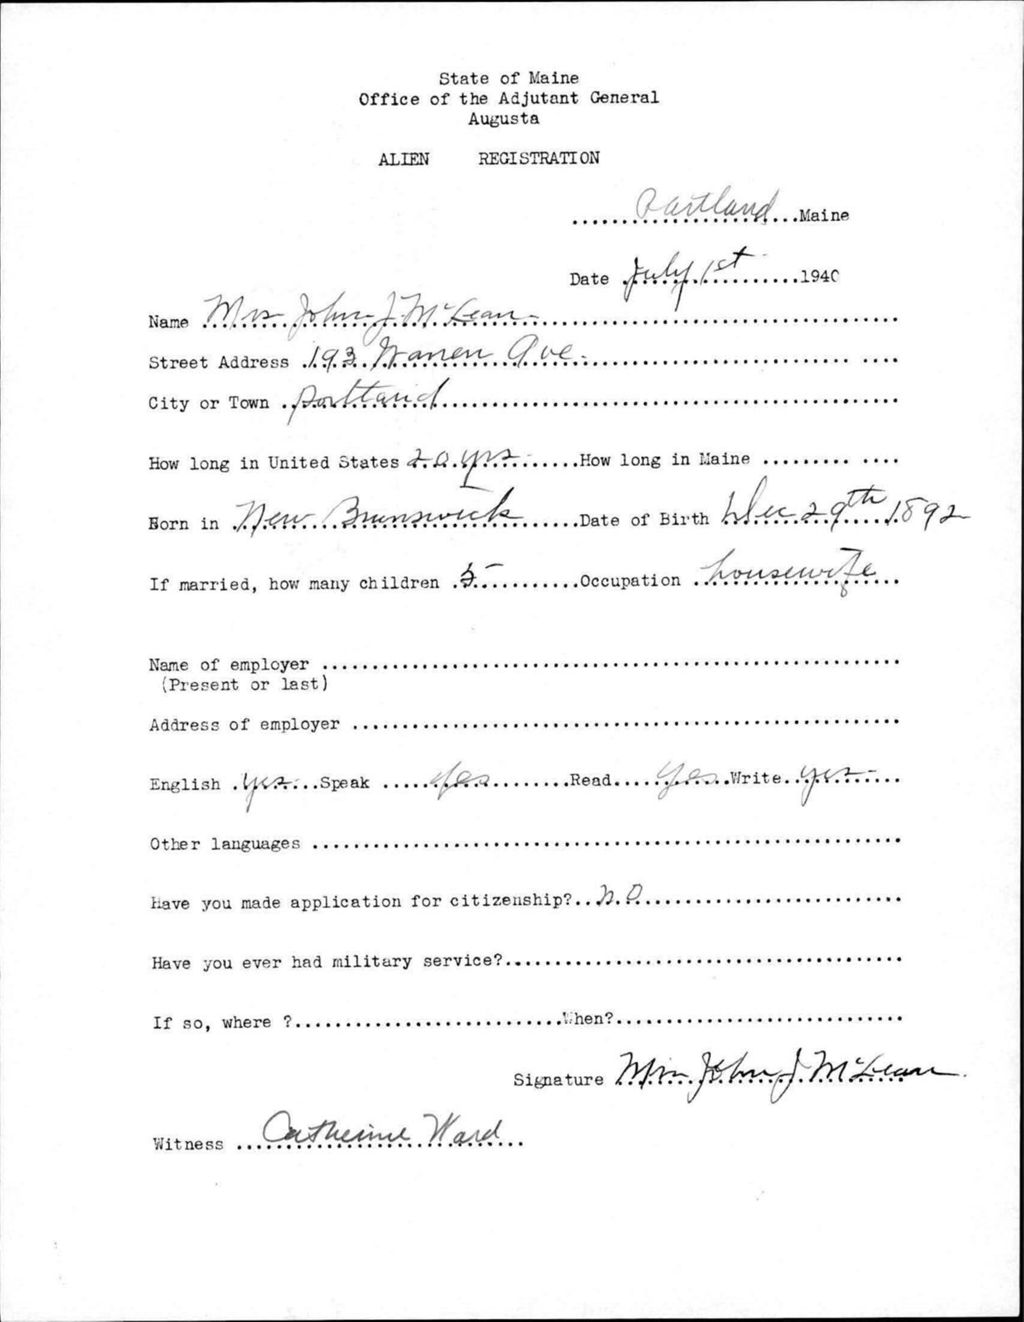 State of Maine
Office of the Adjutant General
Augusta
ALIEN REGISTRATION
Portland Maine
Date July 1st 1940
Name Mrs John J. McLean
Street Address 193 Warren Ave.
City or Town Portland
How long in United States 20 yrs How long in Maine
Born in New Brunswick Date of Birth Dec 29th 1892
If married, how many children 5 Occupation housewife
Name of employer
(Present or last)
Address of employer
English yes Speak yes Read yes Write yes
Other languages
Have you made application for citizenship? no
Have you ever had military service?
If so, where ? When?
Signature Mrs John J McLean.
Witness Catherine Ward